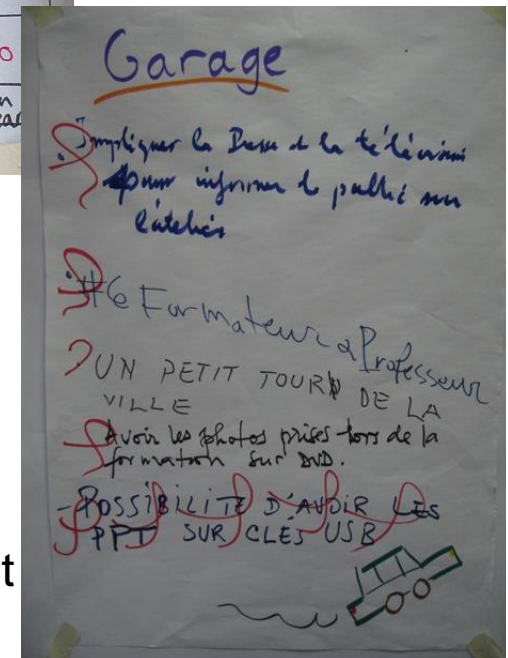 Garage
Impliquer la Presse et la télévision
pour informer le public sur
l'atelier
#6 Formateur a Professeur
UN PETIT TOUR DE LA
VILLE
Avoir les photos prises lors de la
formation sur DVD.
- POSSIBILITÉ D'AVOIR LES
PPT SUR CLÉS USB
t